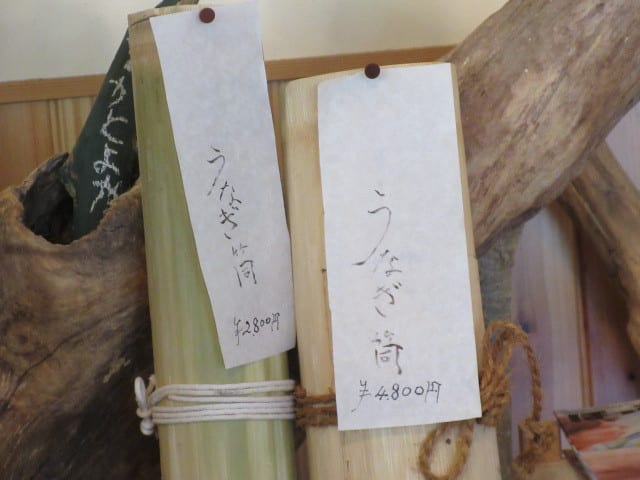 うなぎ筒
¥2,800円
うなぎ筒
¥4,800円